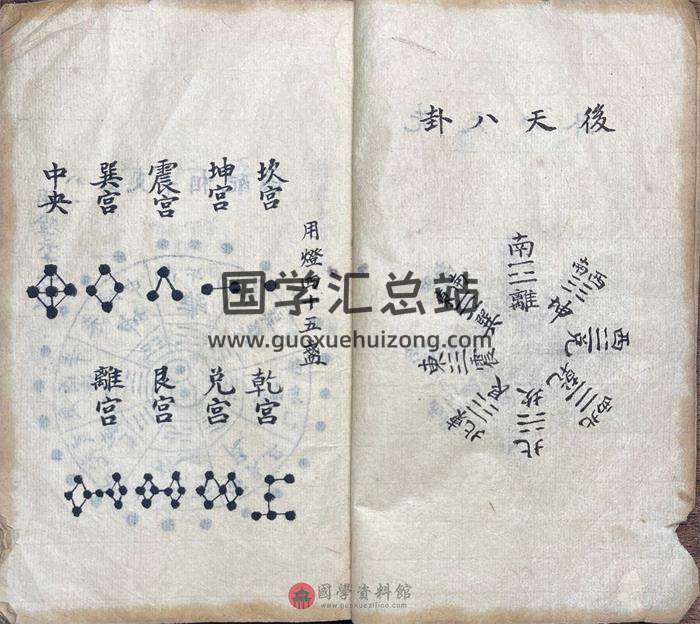 後天八卦
南
離
西南
坤
西
兌
西北
乾
北
坎
東北
艮
東
震
東南
巽
用燈四十五盞
坎宮
坤宮
震宮
巽宮
中央
乾宮
兌宮
艮宮
離宮
国学汇总站
www.guoxuehuizong.com
國學資料館
www.guoxueziliao.com